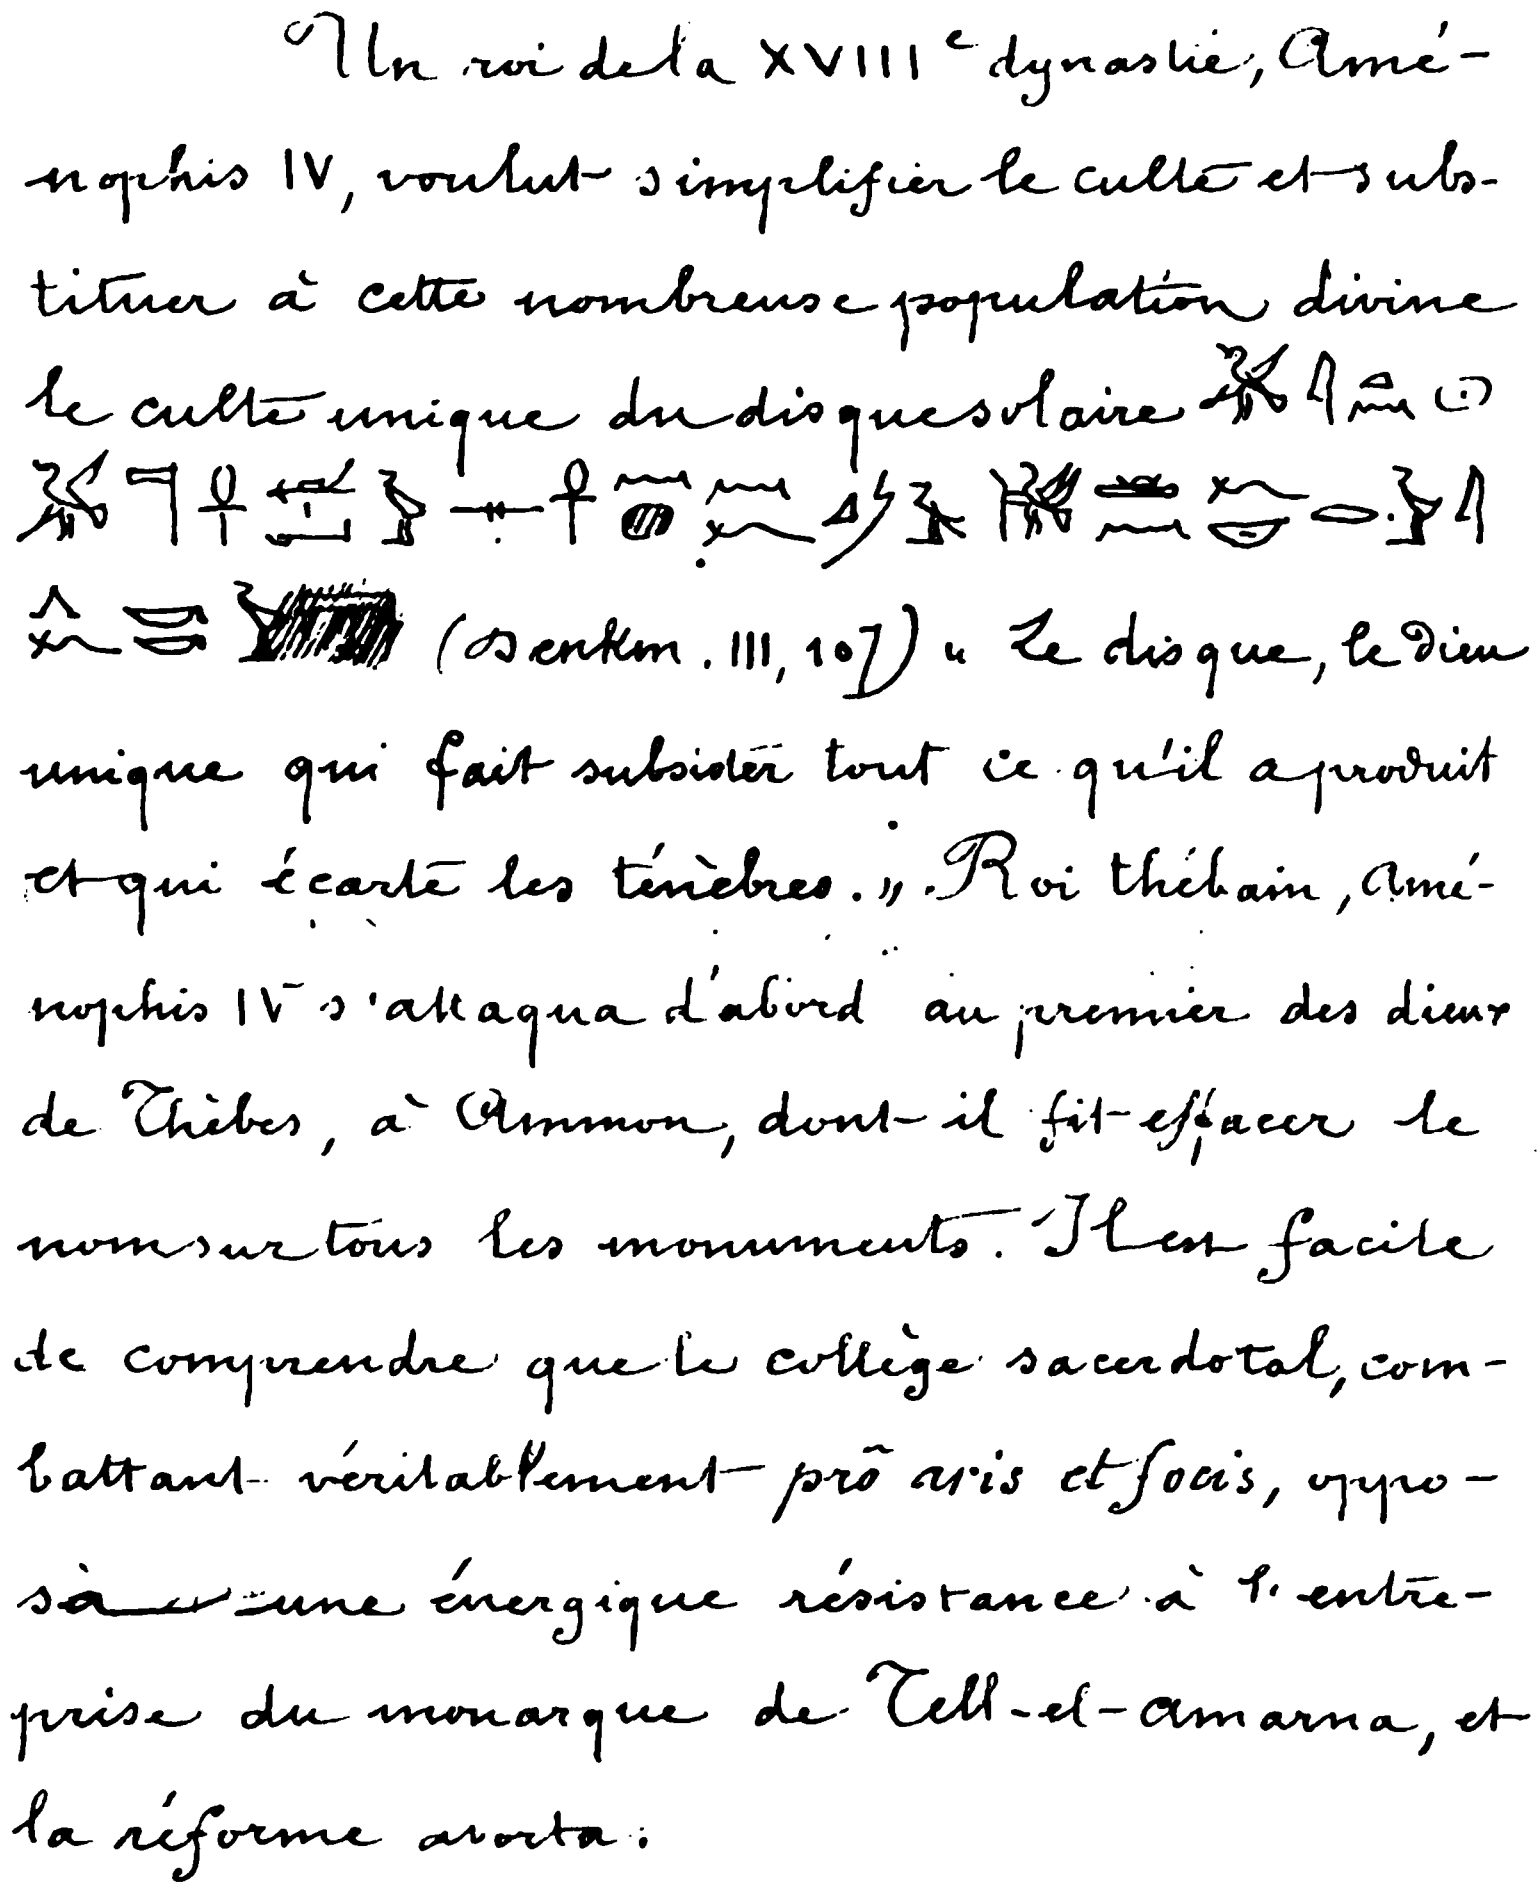 Un roi de la XVIIIe dynastie, Amé-
nophis IV, voulut simplifier le culte et subs-
tituer à cette nombreuse population divine
le culte unique du disque solaire
(Denkm. III, 107) « Le disque, le Dieu
unique qui fait subsister tout ce qu'il a produit
et qui écarte les ténèbres. » Roi thébain, Amé-
nophis IV s'attaqua d'abord au premier des dieux
de Thèbes, à Ammon, dont il fit effacer le
nom sur tous les monuments. Il est facile
de comprendre que le collège sacerdotal, com-
battant véritablement pro aris et focis, oppo-
sa une énergique résistance à l'entre-
prise du monarque de Tell-el-Amarna, et
la réforme avorta.